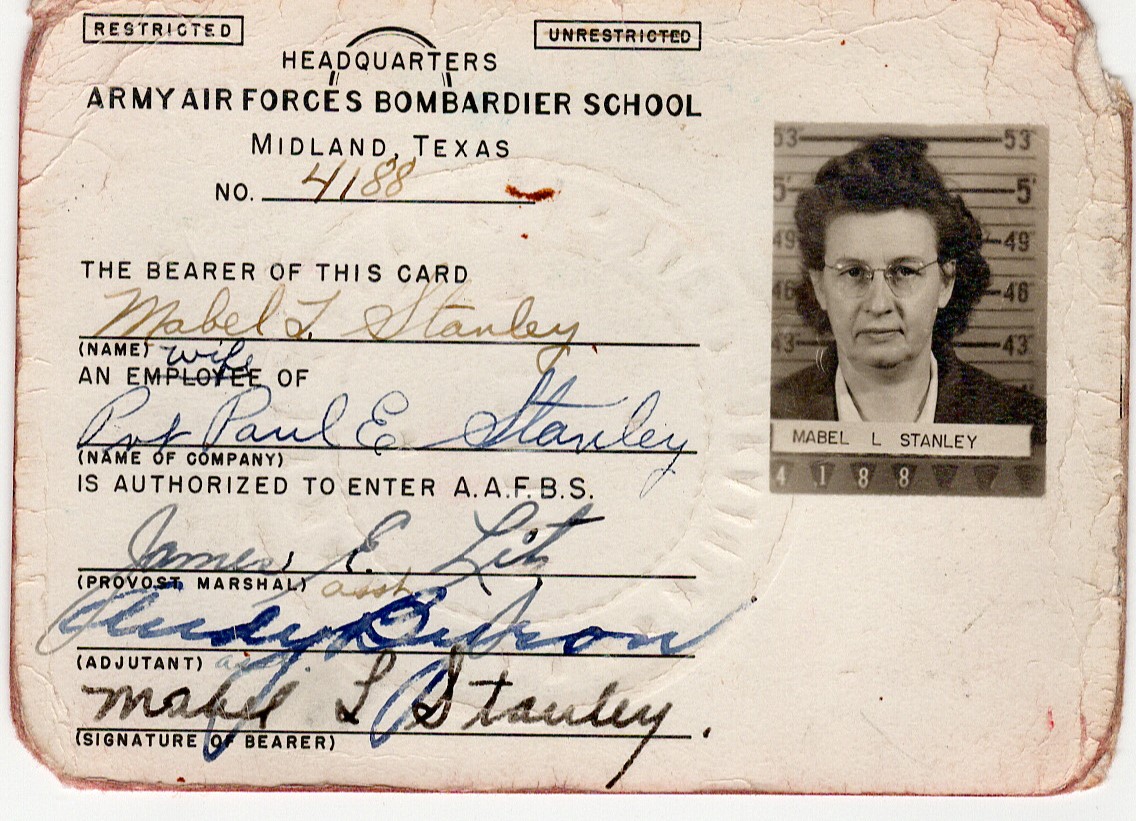 RESTRICTED UNRESTRICTED
HEADQUARTERS
ARMY AIR FORCES BOMBARDIER SCHOOL
MIDLAND, TEXAS
NO. 4188
THE BEARER OF THIS CARD
Mabel L. Stanley
(NAME) wife
AN EMPLOYEE OF
Pvt Paul E Stanley
(NAME OF COMPANY)
IS AUTHORIZED TO ENTER A.A.F.B.S.
James E.
(PROVOST MARSHAL) asst
(ADJUTANT)
Mabel L Stanley.
(SIGNATURE OF BEARER)
53 53
5' 5'
49 49
46 46
43 43
MABEL L STANLEY
4 1 8 8